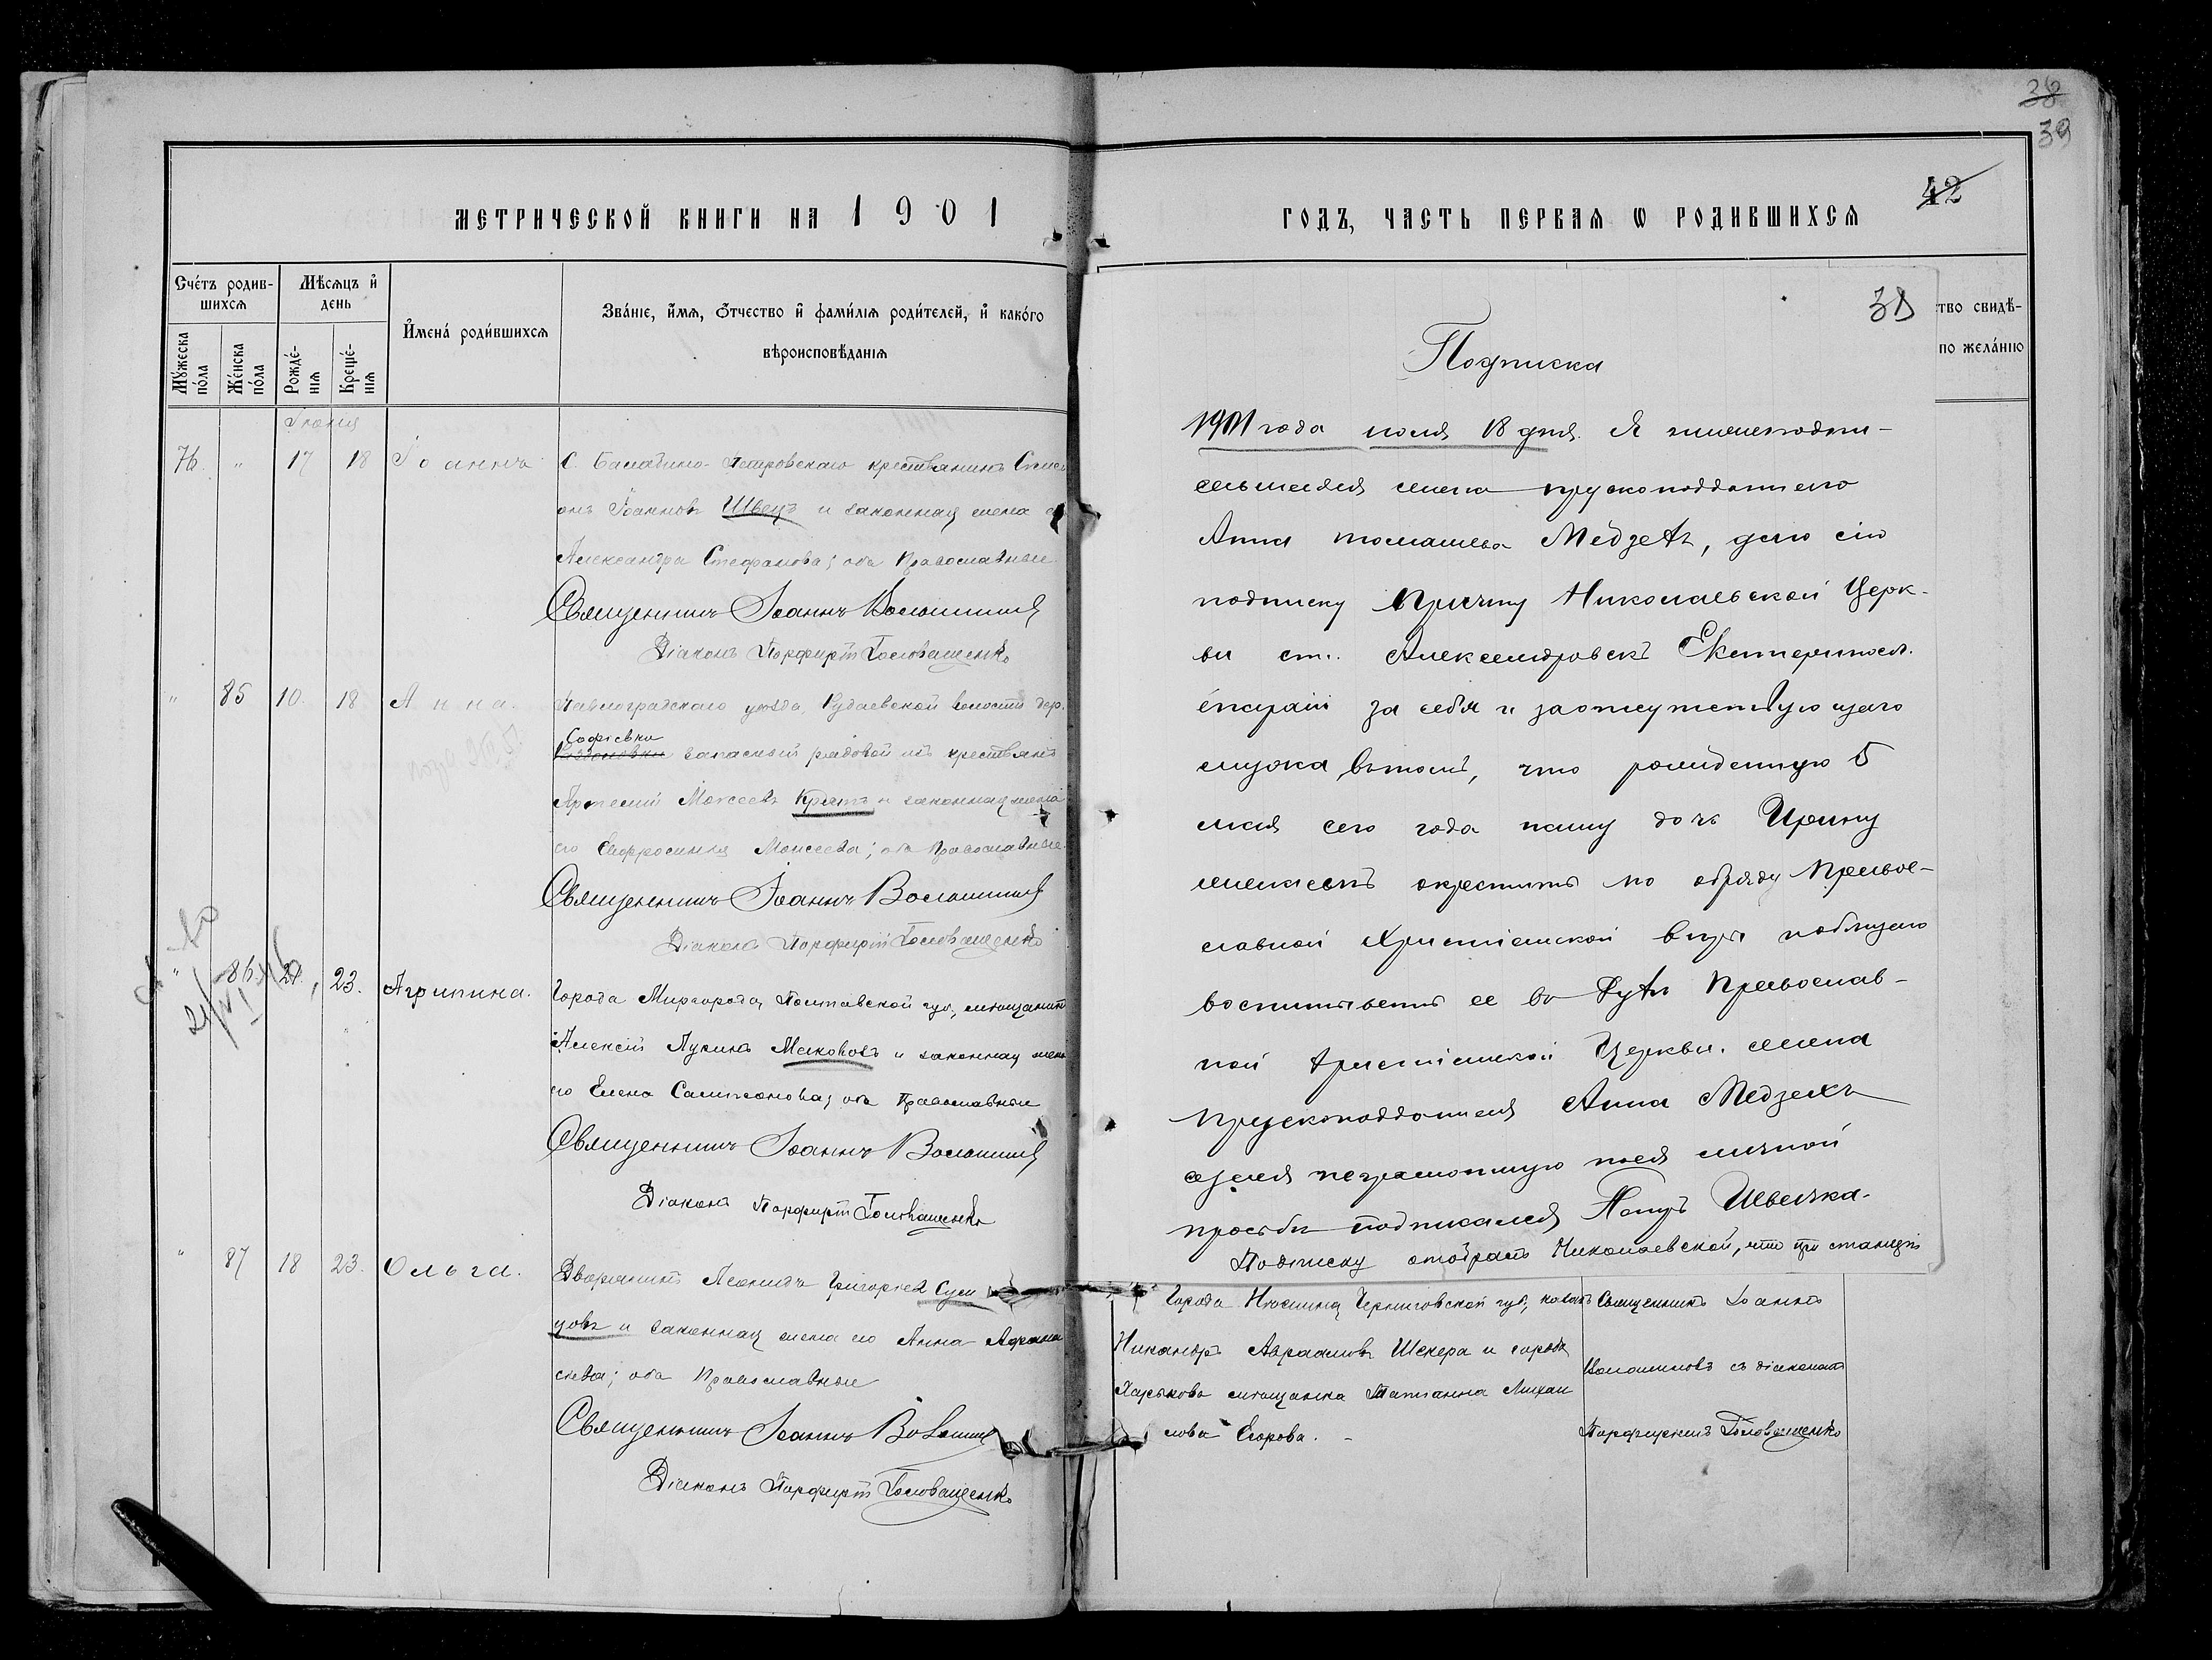 38
39
42
МЕТРИЧЕСКОЙ КНИГИ НА 1901
ГОДЪ, ЧАСТЬ ПЕРВАЯ Ѡ РОДИВШИХСЯ
Сче́тъ родив-
шихся
Мѣсяцъ и҆
день
Му́жеска
по́ла
Же́нска
по́ла
Рожде́-
нія
Креще́-
нія
И҆мена́ роди́вшихся
Зва́ніе, и҆́мя, ѻ҆́тчество и҆ фами́лія роди́телей, и҆ како́го
вѣроисповѣ́данія
Іюня
76. " 17 18 Іоаннъ
С. Балабино-Петровскаго крестьянинъ
Іоанновъ Швецъ и законная жена
Александра Стефанова; оба Православные
Священникъ Іоаннъ Волошиновъ
Діаконъ Порфирій Головащенко
" 85 10. 18 Анна.
Павлоградскаго уѣзда, волости дер.
Софіевки
запасный рядовой изъ крестьянъ
Моисеевъ и законная жена
его Евфросинія Моисеева; оба Православные.
Священникъ Іоаннъ Волошиновъ
Діаконъ Порфирій Головащенко
" 86. 21. 23. Агрипина.
Города Миргорода, Полтавской губ., мѣщанинъ
Алексій Лукинъ Маковозъ и законная жена
его Елена Сампсонова; оба Православные
Священникъ Іоаннъ Волошиновъ
Діаконъ Порфирій Головащенко
" 87 18 23. Ольга.
Дворянинъ Леонидъ Григорьевъ Сум
цовъ и законная жена его Анна Афана
сіева; оба Православные
Священникъ Іоаннъ Волошинов
Діаконъ Порфирій Головащенко
38
тво свидѣ-
по жела́нію
Подписка
1901 года іюня 18 дня. Я нижеподпи-
савшаяся жена прускоподданного
Анна томашева Медзехъ, даю сію
подписку Причту Николаевской Церк-
ви ст. Александровскъ Екатериносл.
епархіи за себя и заотсутствующего
мужа, вътомъ, что рожденную 5
мая сего года нашу дочь Ирину
желаемъ окрестить по обряду Право-
славной Христіанской вѣры
воспитывать ее въ духѣ Православ-
ной Христіанской Церкви. жена
прускоподданная Анна Медзехъ
неграмотную по ея личной
просьбѣ подписался Швечка.
Подписку отобралъ Николаевской, что при станціи
Города Нѣжина Черниговской губ., козакъ
Никаноръ Авраамовъ Шекера и города
Харькова мѣщанка Татіанна Михаи
лова Егорова. -
Священникъ Іоаннъ
Волошиновъ съ діакономъ
Порфиріемъ Головащенко